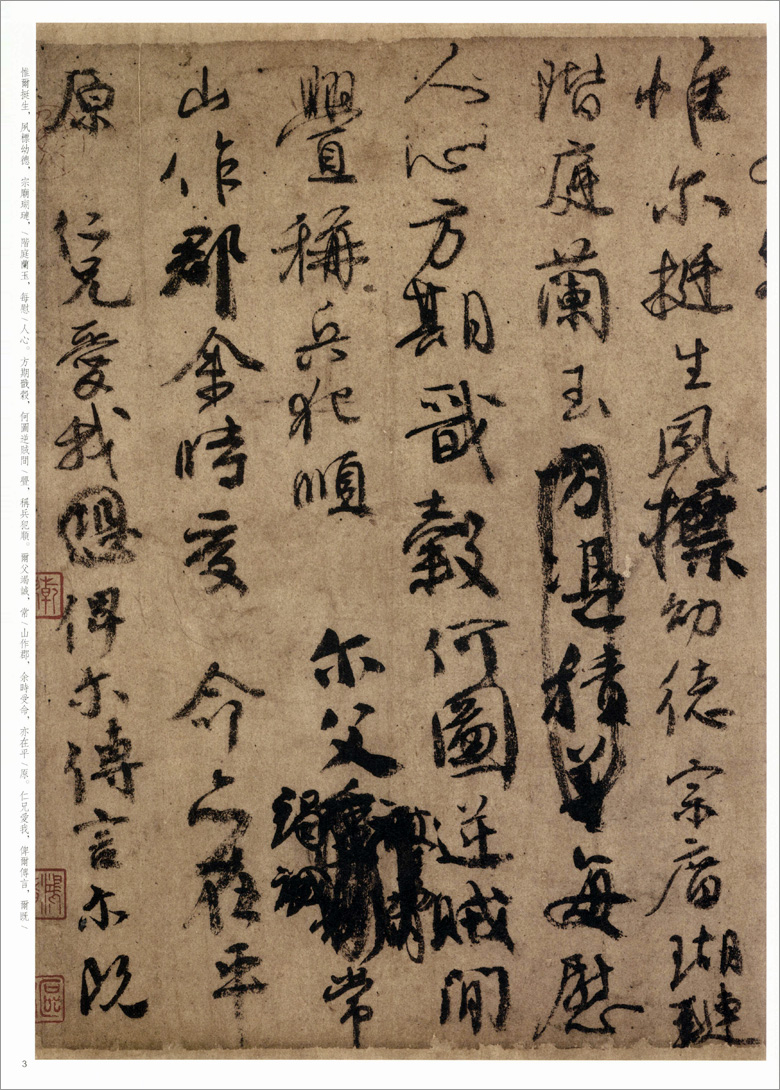 惟尔挺生夙標幼德宗庿瑚璉
階庭蘭玉方憑積善每慰
人心方期戩榖何圖逆賊間
舋稱兵犯順尔父竭誠常
山作郡余時受命亦在平
原仁兄愛我恐俾尔傳言尔既
惟爾挺生，夙標幼德，宗廟瑚璉，/階庭蘭玉，每慰/人心。方期戩穀，何圖逆賊間/舋，稱兵犯順。爾父竭誠，常/山作郡，余時受命，亦在平/原。仁兄愛我，俾爾傳言，爾既/
3